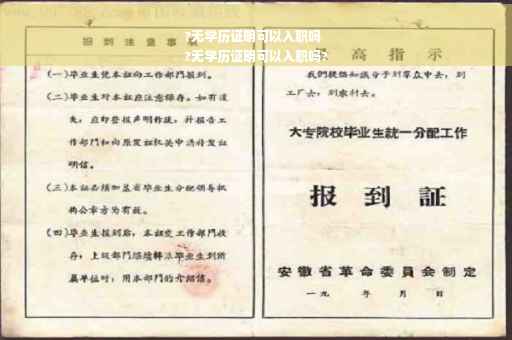 ?无学历证明可以入职吗
?无学历证明可以入职吗?
报到注意事项
(一)毕业生凭本证向工作部門报到。
(二)毕业生对本証应注意保存。如有遗
失,应即登报声明作废,并报告工
作部門和向原发証机关申請补发証
明信。
(三)本証必須加盖省毕业生分配领导机
构公章方为有效。
(四)毕业生报到后,本証交工作部門收
存,上級部門繼續轉派毕业生到所
属单位时,用本部門的介绍信。
最高指示
我們提倡知識分子到羣众中去,到
工厂去,到农村去。
大专院校毕业生統一分配工作
报到証
安徽省革命委員会制定
一九 年 月 日